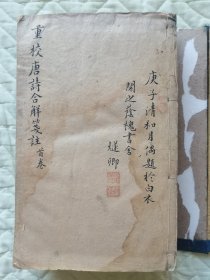 重校唐詩合解箋註首卷
庚子清和月偶題於白衣
閣之蔭槐書舍